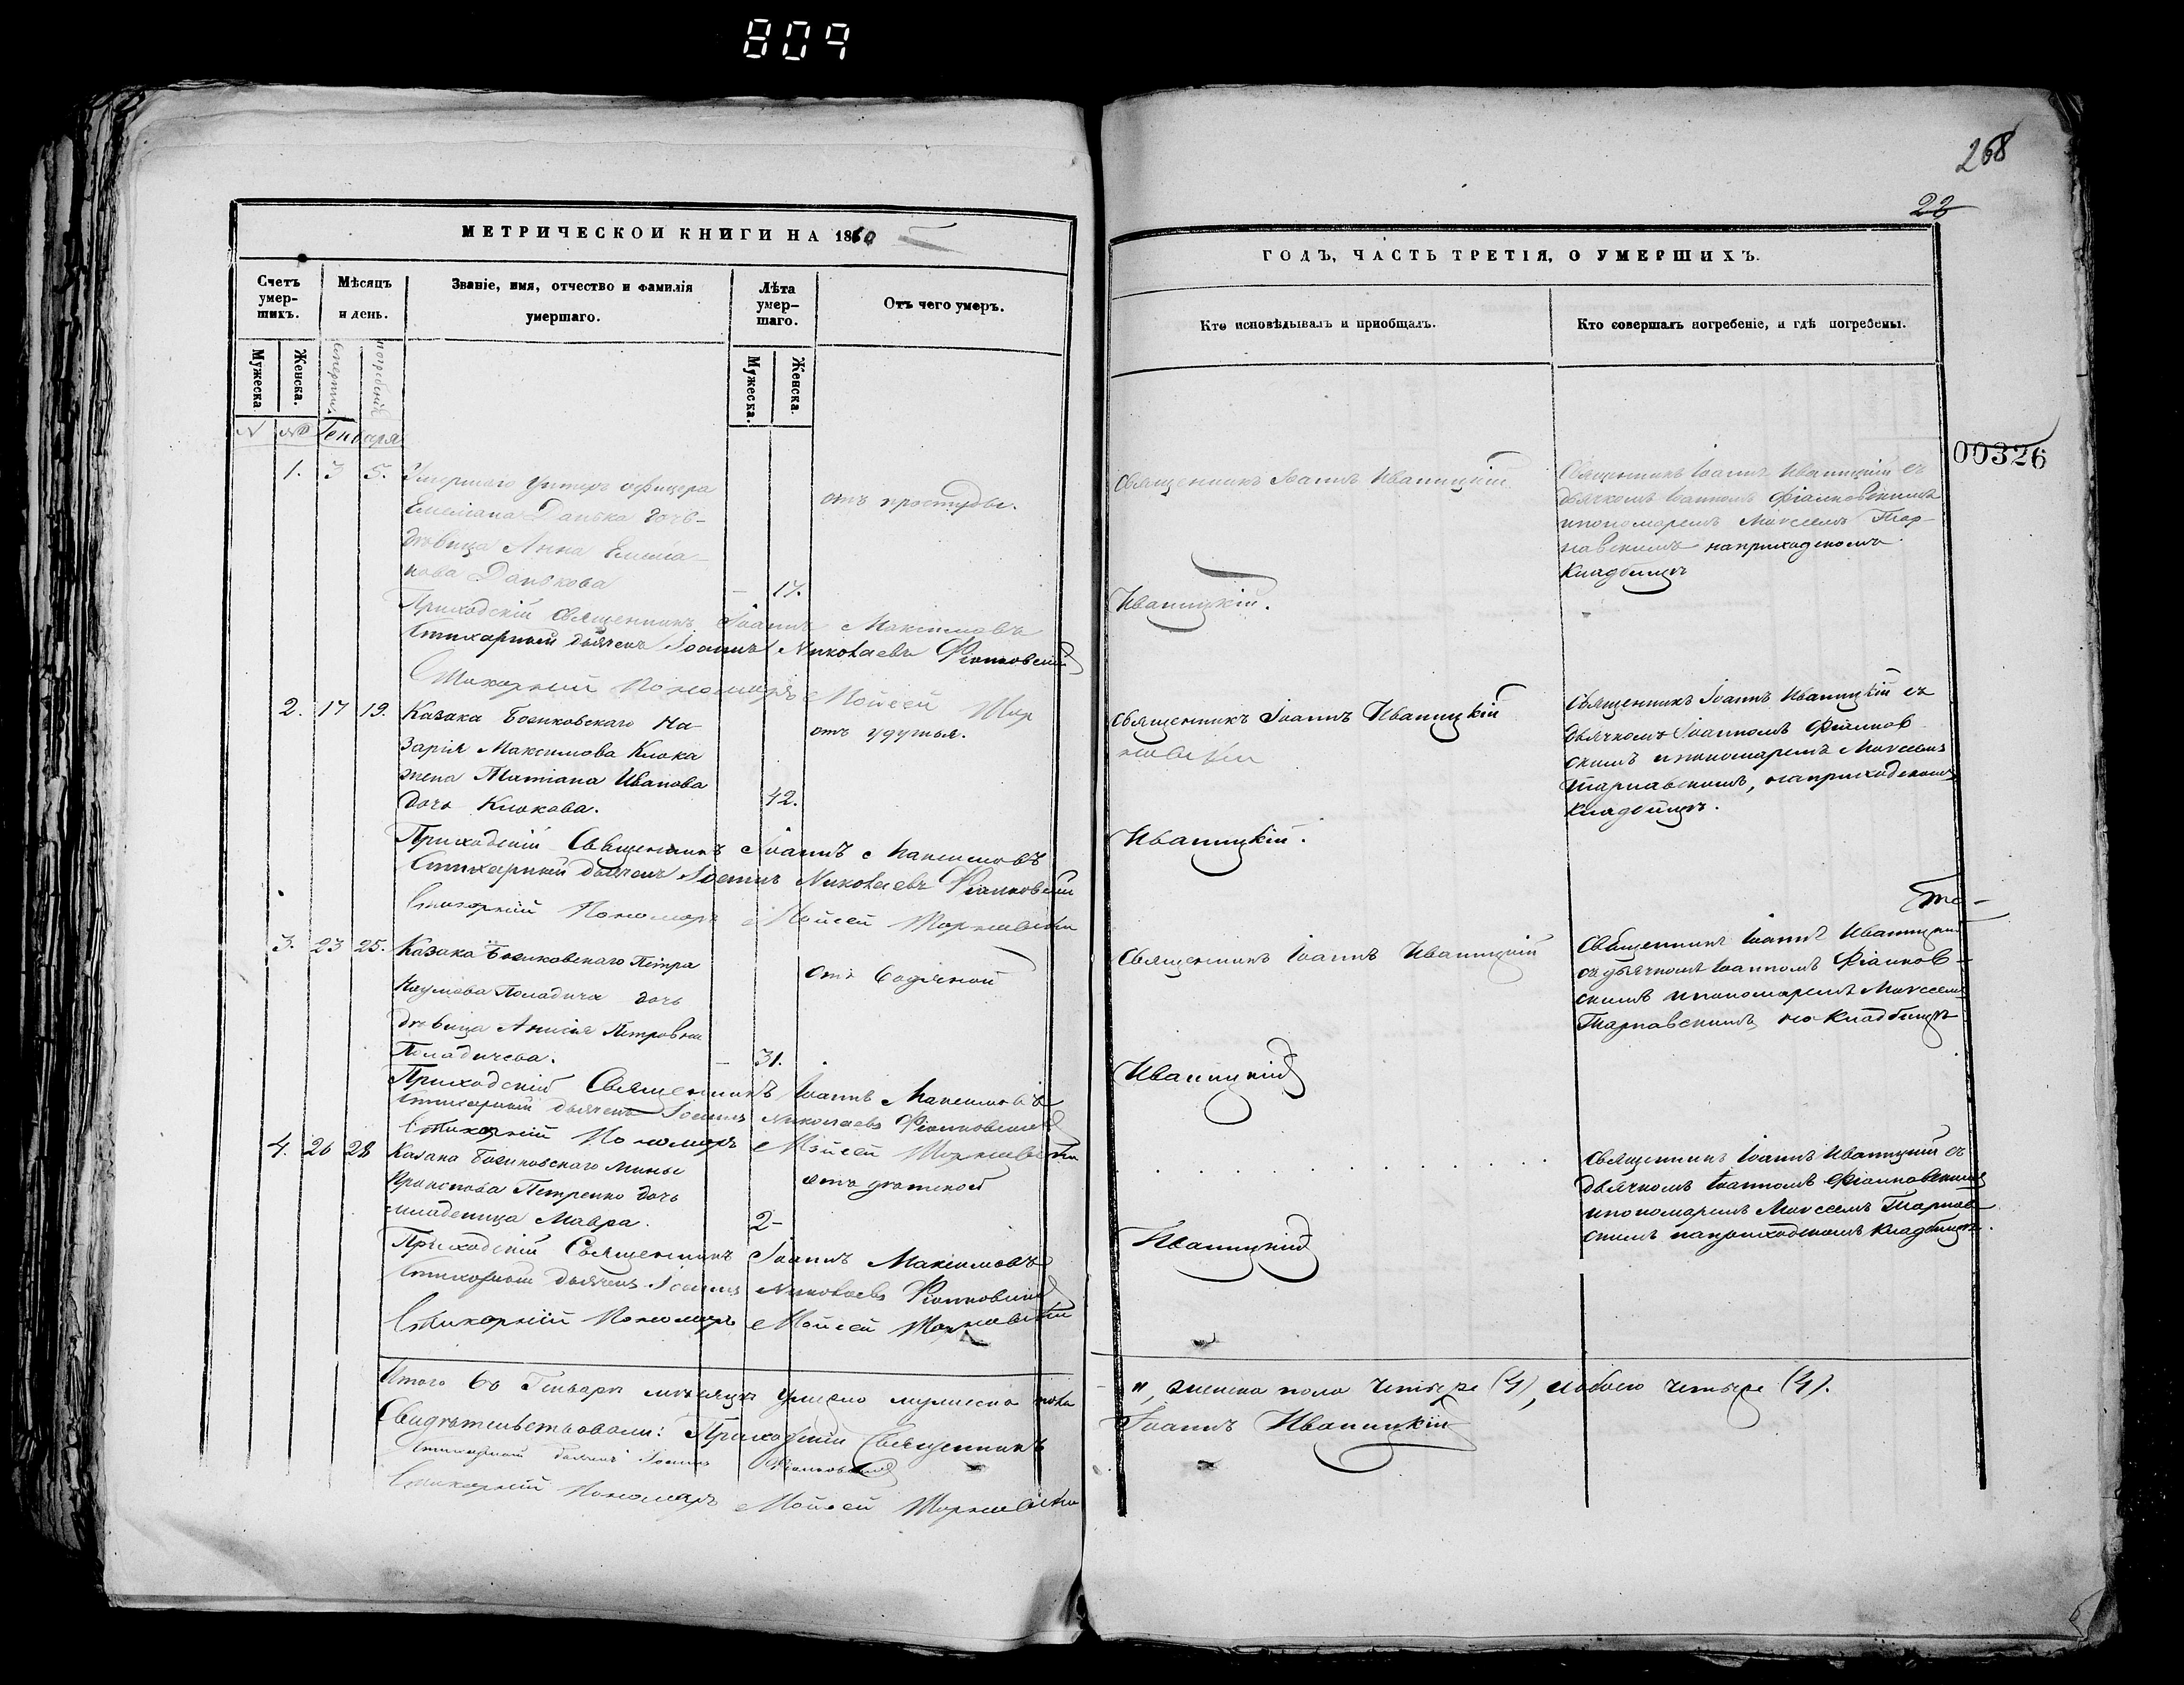 809
268
22
00326
МЕТРИЧЕСКОЙ КНИГИ НА 1860
Счетъ умер-
шихъ.
Мѣсяцъ
и день.
Званіе, имя, отчество и фамилія
умершаго.
Лѣта
умер-
шаго.
Отъ чего умеръ.
Мужеска
Женска.
смерти
погребенія
Мужеска.
Женска.
№ № Генваря
1. 3 5. Умершаго Унтеръ офицера
Емеліана Данька дочь
дѣвица Анна Емелiа-
нова Данькова
17.
отъ простуды.
Приходскій Священникъ Іоаннъ Максимовъ
Стихарный дьячекъ Іоаннъ Николаевъ Фіалковскій
Стихарный Пономарь Мойсей Тар
2. 17 19. Казака Босиковскаго На-
зарія Максимова Клюка
жена Татіана Иванова
дочь Клюкова.
42.
отъ удушья.
Приходскій Священникъ Іоаннъ Максимовъ
Стихарный дьячекъ Іоаннъ Николаевъ Фіалковскій
Стихарный Пономарь Мойсей Тарнавскій
3. 23 25. Казака Босиковскаго Петра
Наумова Поладича дочь
дѣвица Анисія Петровна
Поладичева.
31.
отъ водяной
Приходскій Священникъ Іоаннъ Максимовъ
Стихарный дьячекъ Іоаннъ Николаевъ Фіалковскій
Стихарный Пономарь Мойсей Тарнавскій
4. 26 28 Казака Босиковскаго Мины
Петренко дочь
младеница Мавра.
2
Приходскій Священникъ Іоаннъ Максимовъ
Стихарный дьячекъ Іоаннъ Николаевъ Фіалковскій
Стихарный Пономарь Мойсей Тарнавскій
Итого въ Генварѣ мѣсяцѣ умерло мужеска пола
Свидѣтельствовали: Приходскій Священникъ
Стихарный дьячекъ Іоаннъ Фіалковскій
Стихарный Пономарь Мойсей Тарнавскій
ГОДЪ, ЧАСТЬ ТРЕТІЯ, О УМЕРШИХЪ.
Кто исповѣдывалъ и пріобщалъ.
Кто совершалъ погребеніе, и гдѣ погребены.
Священникъ Іоаннъ Иваницкій
Священникъ Іоаннъ Иваницкій съ
дьячкомъ Іоанномъ Фіалковскимъ
и пономаремъ Моисеемъ Тар-
навскимъ на приходскомъ
кладбищѣ
Иваницкій.
Священникъ Іоаннъ Иваницкій
навскій
Священникъ Іоаннъ Иваницкій съ
дьячкомъ Іоанномъ Фіалков
скимъ и пономаремъ Моисеемъ
Тарнавскимъ, на приходскомъ
кладбищѣ.
Иваницкій.
Священникъ Іоаннъ Иваницкій
Священникъ Іоаннъ Иваницкій
съ дьячкомъ Іоанномъ Фіалков-
скимъ и пономаремъ Моисеемъ
Тарнавскимъ на кладбищѣ
Иваницкій
Священникъ Іоаннъ Иваницкій съ
дьячкомъ Іоанномъ Фіалковскимъ
и пономаремъ Моисеемъ Тарнав
скимъ на приходскомъ кладбищѣ.
Иваницкій
", женска пола четыре (4), обоего четыре (4).
Іоаннъ Иваницкій